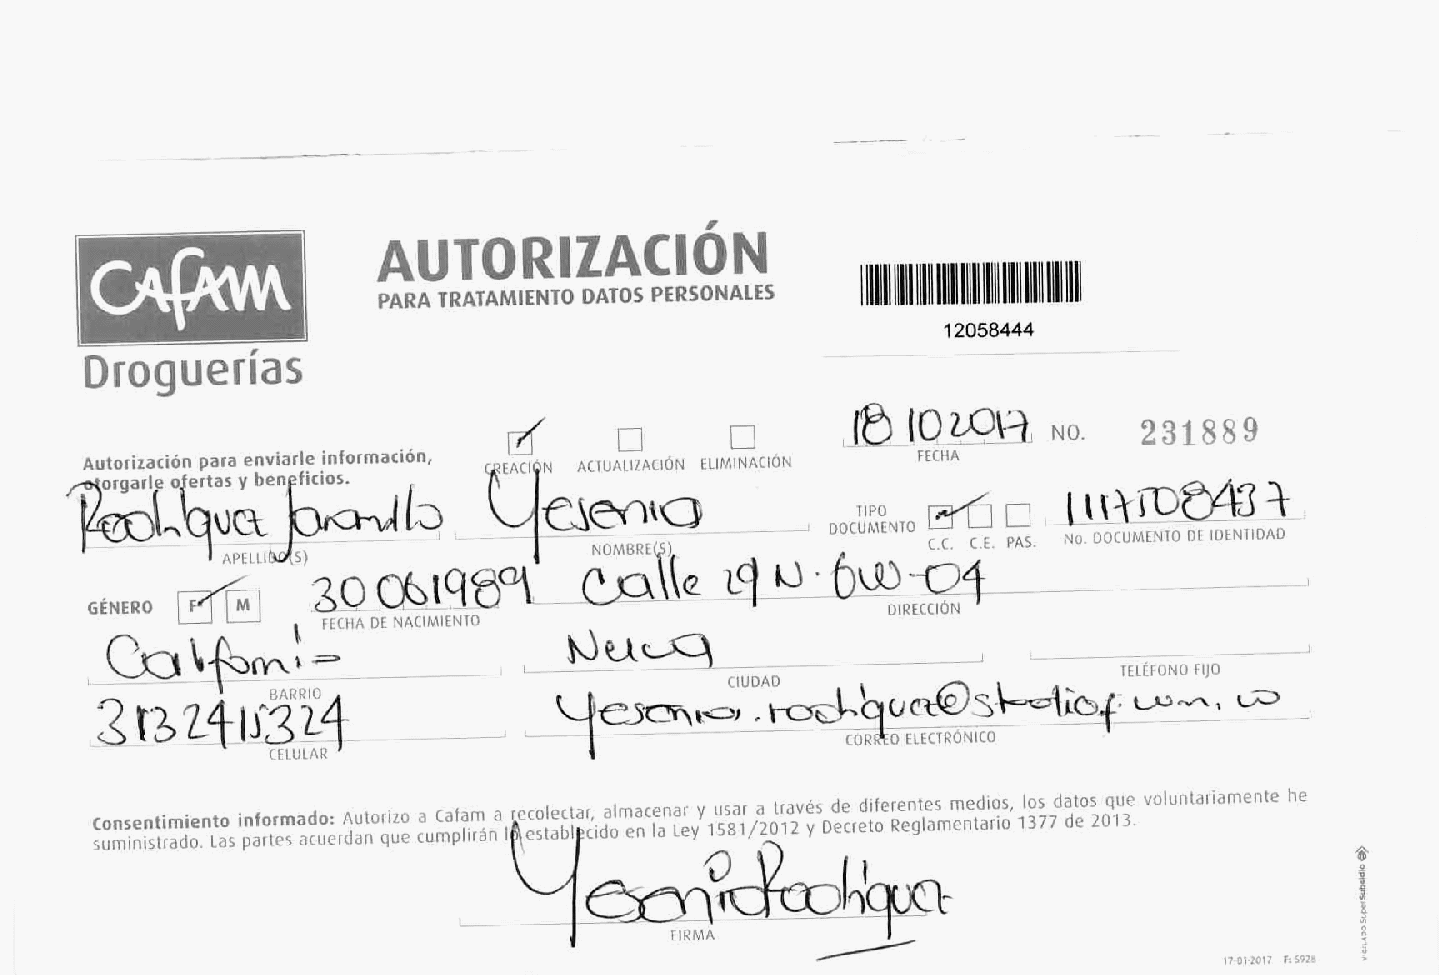 CAFAM
Droguerías
AUTORIZACIÓN
PARA TRATAMIENTO DATOS PERSONALES
12058444
Autorización para enviarle información,
otorgarle ofertas y beneficios.
CREACIÓN ACTUALIZACIÓN ELIMINACIÓN
18 10 2017 NO. 231889
FECHA
Rodriguez Jaramillo Yesenia
APELLIDO(S) NOMBRE(S)
TIPO DOCUMENTO C.C. C.E. PAS.
1117508437
No. DOCUMENTO DE IDENTIDAD
GÉNERO F M 30 06 1989 Calle 29 N. 6W-04
FECHA DE NACIMIENTO DIRECCIÓN
California Neiva
BARRIO CIUDAD TELÉFONO FIJO
3132415324 yesenia.rodriguez@studiof.com.co
CELULAR CORREO ELECTRÓNICO
Consentimiento informado: Autorizo a Cafam a recolectar, almacenar y usar a través de diferentes medios, los datos que voluntariamente he
suministrado. Las partes acuerdan que cumplirán lo establecido en la Ley 1581/2012 y Decreto Reglamentario 1377 de 2013.
Yesenia Rodriguez
FIRMA
VIGILADO SuperSubsidio
17-01-2017 F: 5928